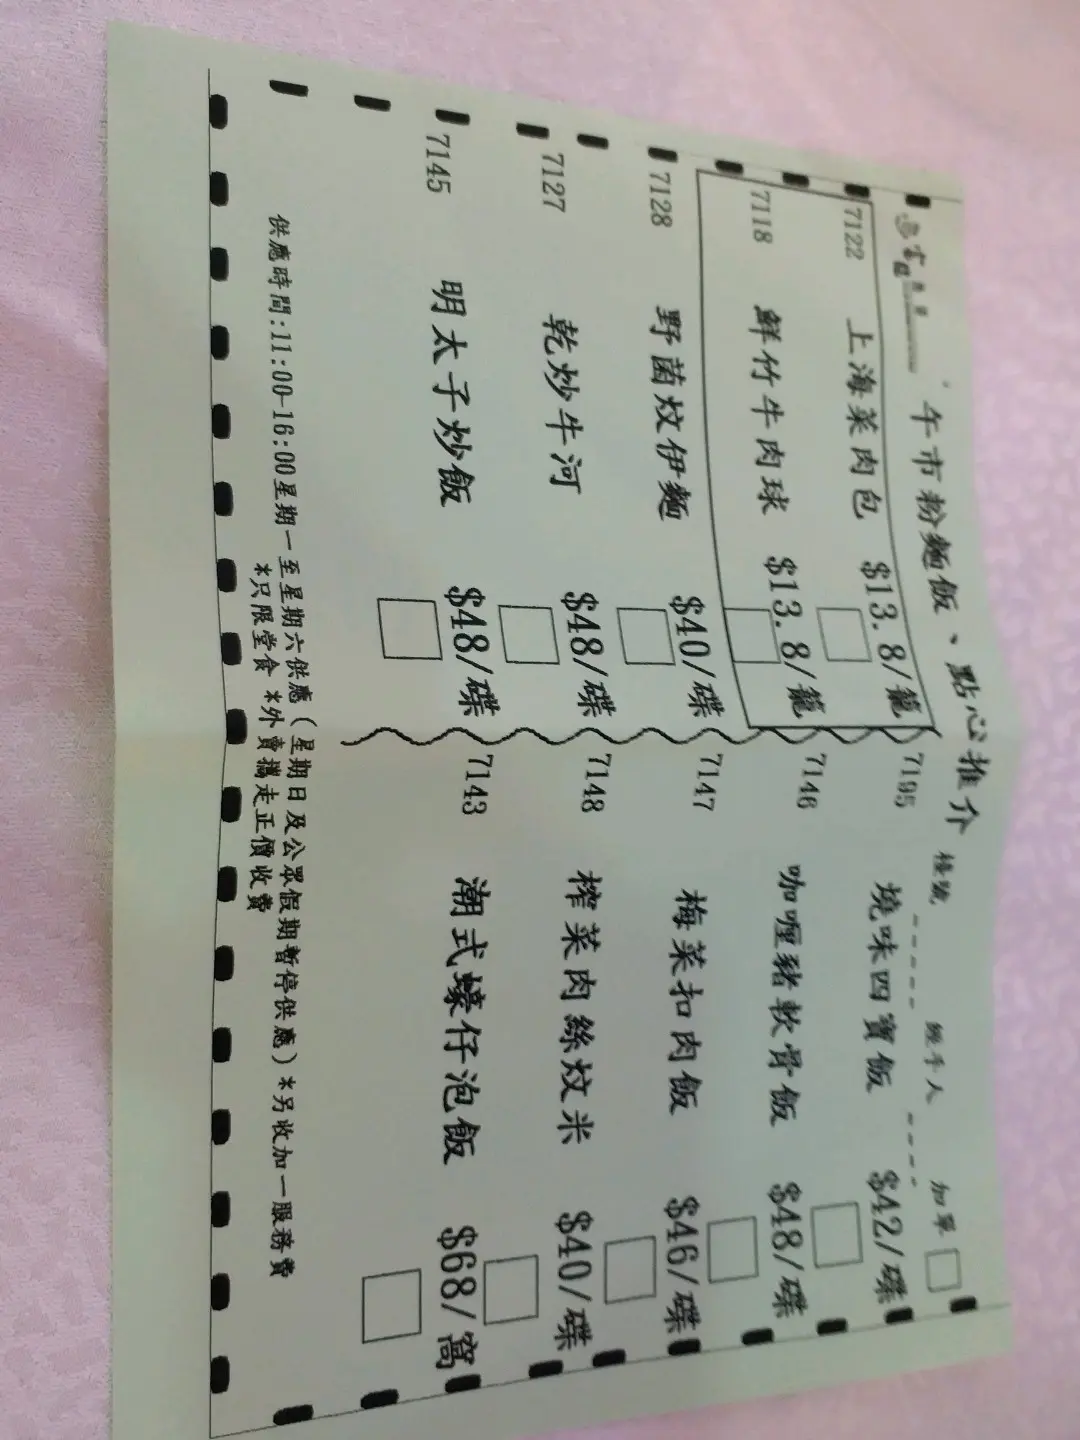 午市粉麵飯、點心推介
檯號 ---- 經手人 ---- 加單
7122 上海菜肉包 $13.8/籠
7118 鮮竹牛肉球 $13.8/籠
7128 野菌炆伊麵 $40/碟
7127 乾炒牛河 $48/碟
7145 明太子炒飯 $48/碟
7195 燒味四寶飯 $42/碟
7146 咖喱豬軟骨飯 $48/碟
7147 梅菜扣肉飯 $46/碟
7148 榨菜肉絲炆米 $40/碟
7143 潮式蠔仔泡飯 $68/窩
供應時間:11:00-16:00星期一至星期六供應(星期日及公眾假期暫停供應)*另收加一服務費
*只限堂食 *外賣攜走正價收費